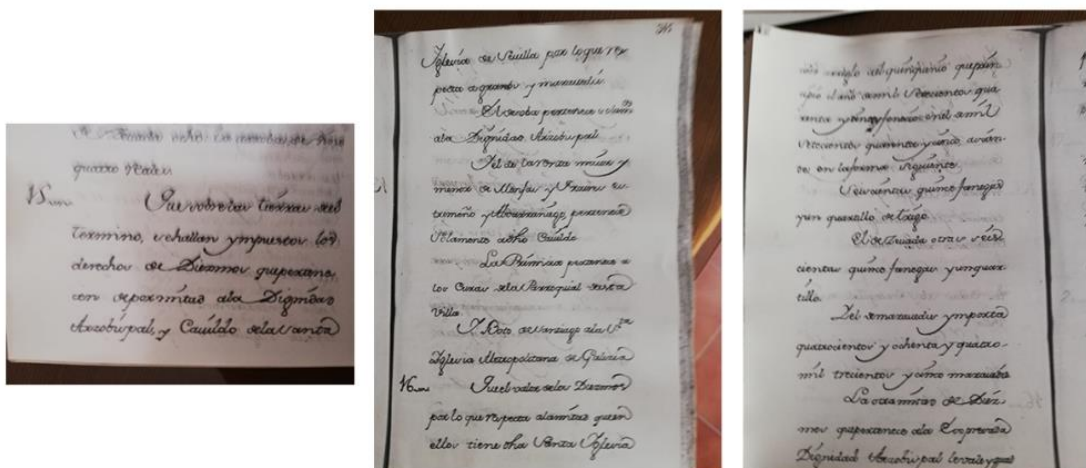 quatro Reales
15 Que sobre las tierras del
termino, se hallan ympuestos los
derechos de Diezmos que pertene
cen de por mitad a la Dignidad
Arzobispal, y Cavildo de la Santa
Iglesia de Sevilla por lo que res
pecta a granos y maravedis
El de pertenece
a la Dignidad Arzobispal
Y el de la renta maior y
menor de y
y pertenece
Solamente a dho Cavildo
La Primicia pertenece a
los Curas de la Parroquial de esta
Villa
Y Boto de Santiago a la Sta
Iglesia Metropolitana de Galicia
16 Que el valor de los Diezmos
por lo que respecta a la mitad que en
ellos tiene dha Santa Iglesia
arreglo al quinquenio que prin
cipio el año de mil Setecientos qua
renta y uno y fenecio en el de mil
Setecientos quarenta y cinco, ascien
de en la forma siguiente
Seiscientas quince fanegas
y un quartillo de trigo
El de Zevada otras seis
cientas quince fanegas y un quar
tillo
Y el de maravedis ymporta
quatrocientos y ochenta y quatro
mil trecientos y cinco maravedis
La otra mitad de Diez
mos que pertenece a la Expresada
Dignidad Arzobispal le vale ygual